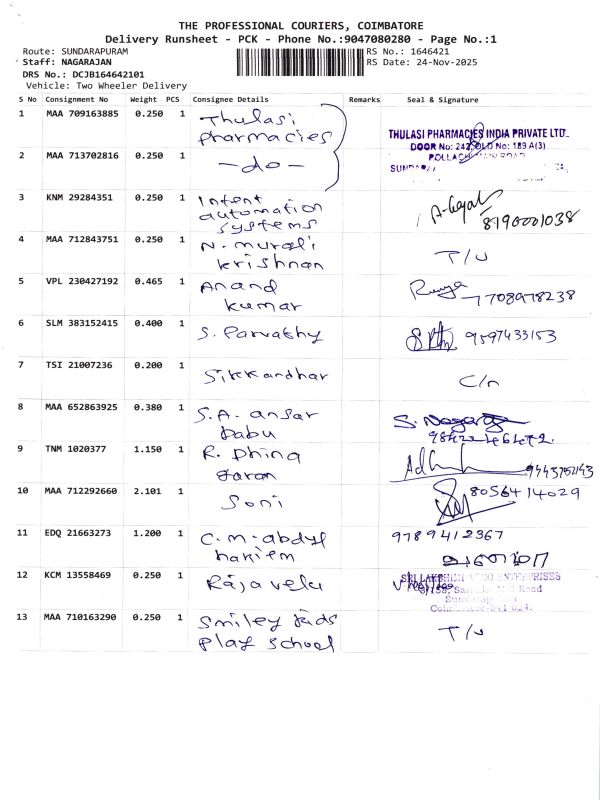 THE PROFESSIONAL COURIERS, COIMBATORE
Delivery Runsheet - PCK - Phone No.:9047080280 - Page No.:1
Route: SUNDARAPURAM RS No.: 1646421
Staff: NAGARAJAN RS Date: 24-Nov-2025
DRS No.: DCJB164642101
Vehicle: Two Wheeler Delivery
S No Consignment No Weight PCS Consignee Details Remarks Seal & Signature
1 MAA 709163885 0.250 1 Thulasi
pharmacies
THULASI PHARMACIES INDIA PRIVATE LTD.
DOOR No: 242, OLD No: 189 A(3)
2 MAA 713702816 0.250 1 -do-
POLLACHI MAIN ROAD
3 KNM 29284351 0.250 1 Intent
automation
systems
8190001038
4 MAA 712843751 0.250 1 N. murali
krishnan
T/U
5 VPL 230427192 0.465 1 Anand
kumar
7708978238
6 SLM 383152415 0.400 1 S. Parvathy 9597433153
7 TSI 21007236 0.200 1 Sikkandhar C/n
8 MAA 652863925 0.380 1 S.A. ansar
babu
9 TNM 1020377 1.150 1 R. Dhina
garan
10 MAA 712292660 2.101 1 Soni 8056414029
11 EDQ 21663273 1.200 1 C.m. abdul
hakiem
9789412367
12 KCM 13558469 0.250 1 Rajavelu
SRI LAKSHMI AUTO ENTERPRISES
Road
Coimbatore-641 024.
13 MAA 710163290 0.250 1 Smiley kids
Play school
T/U